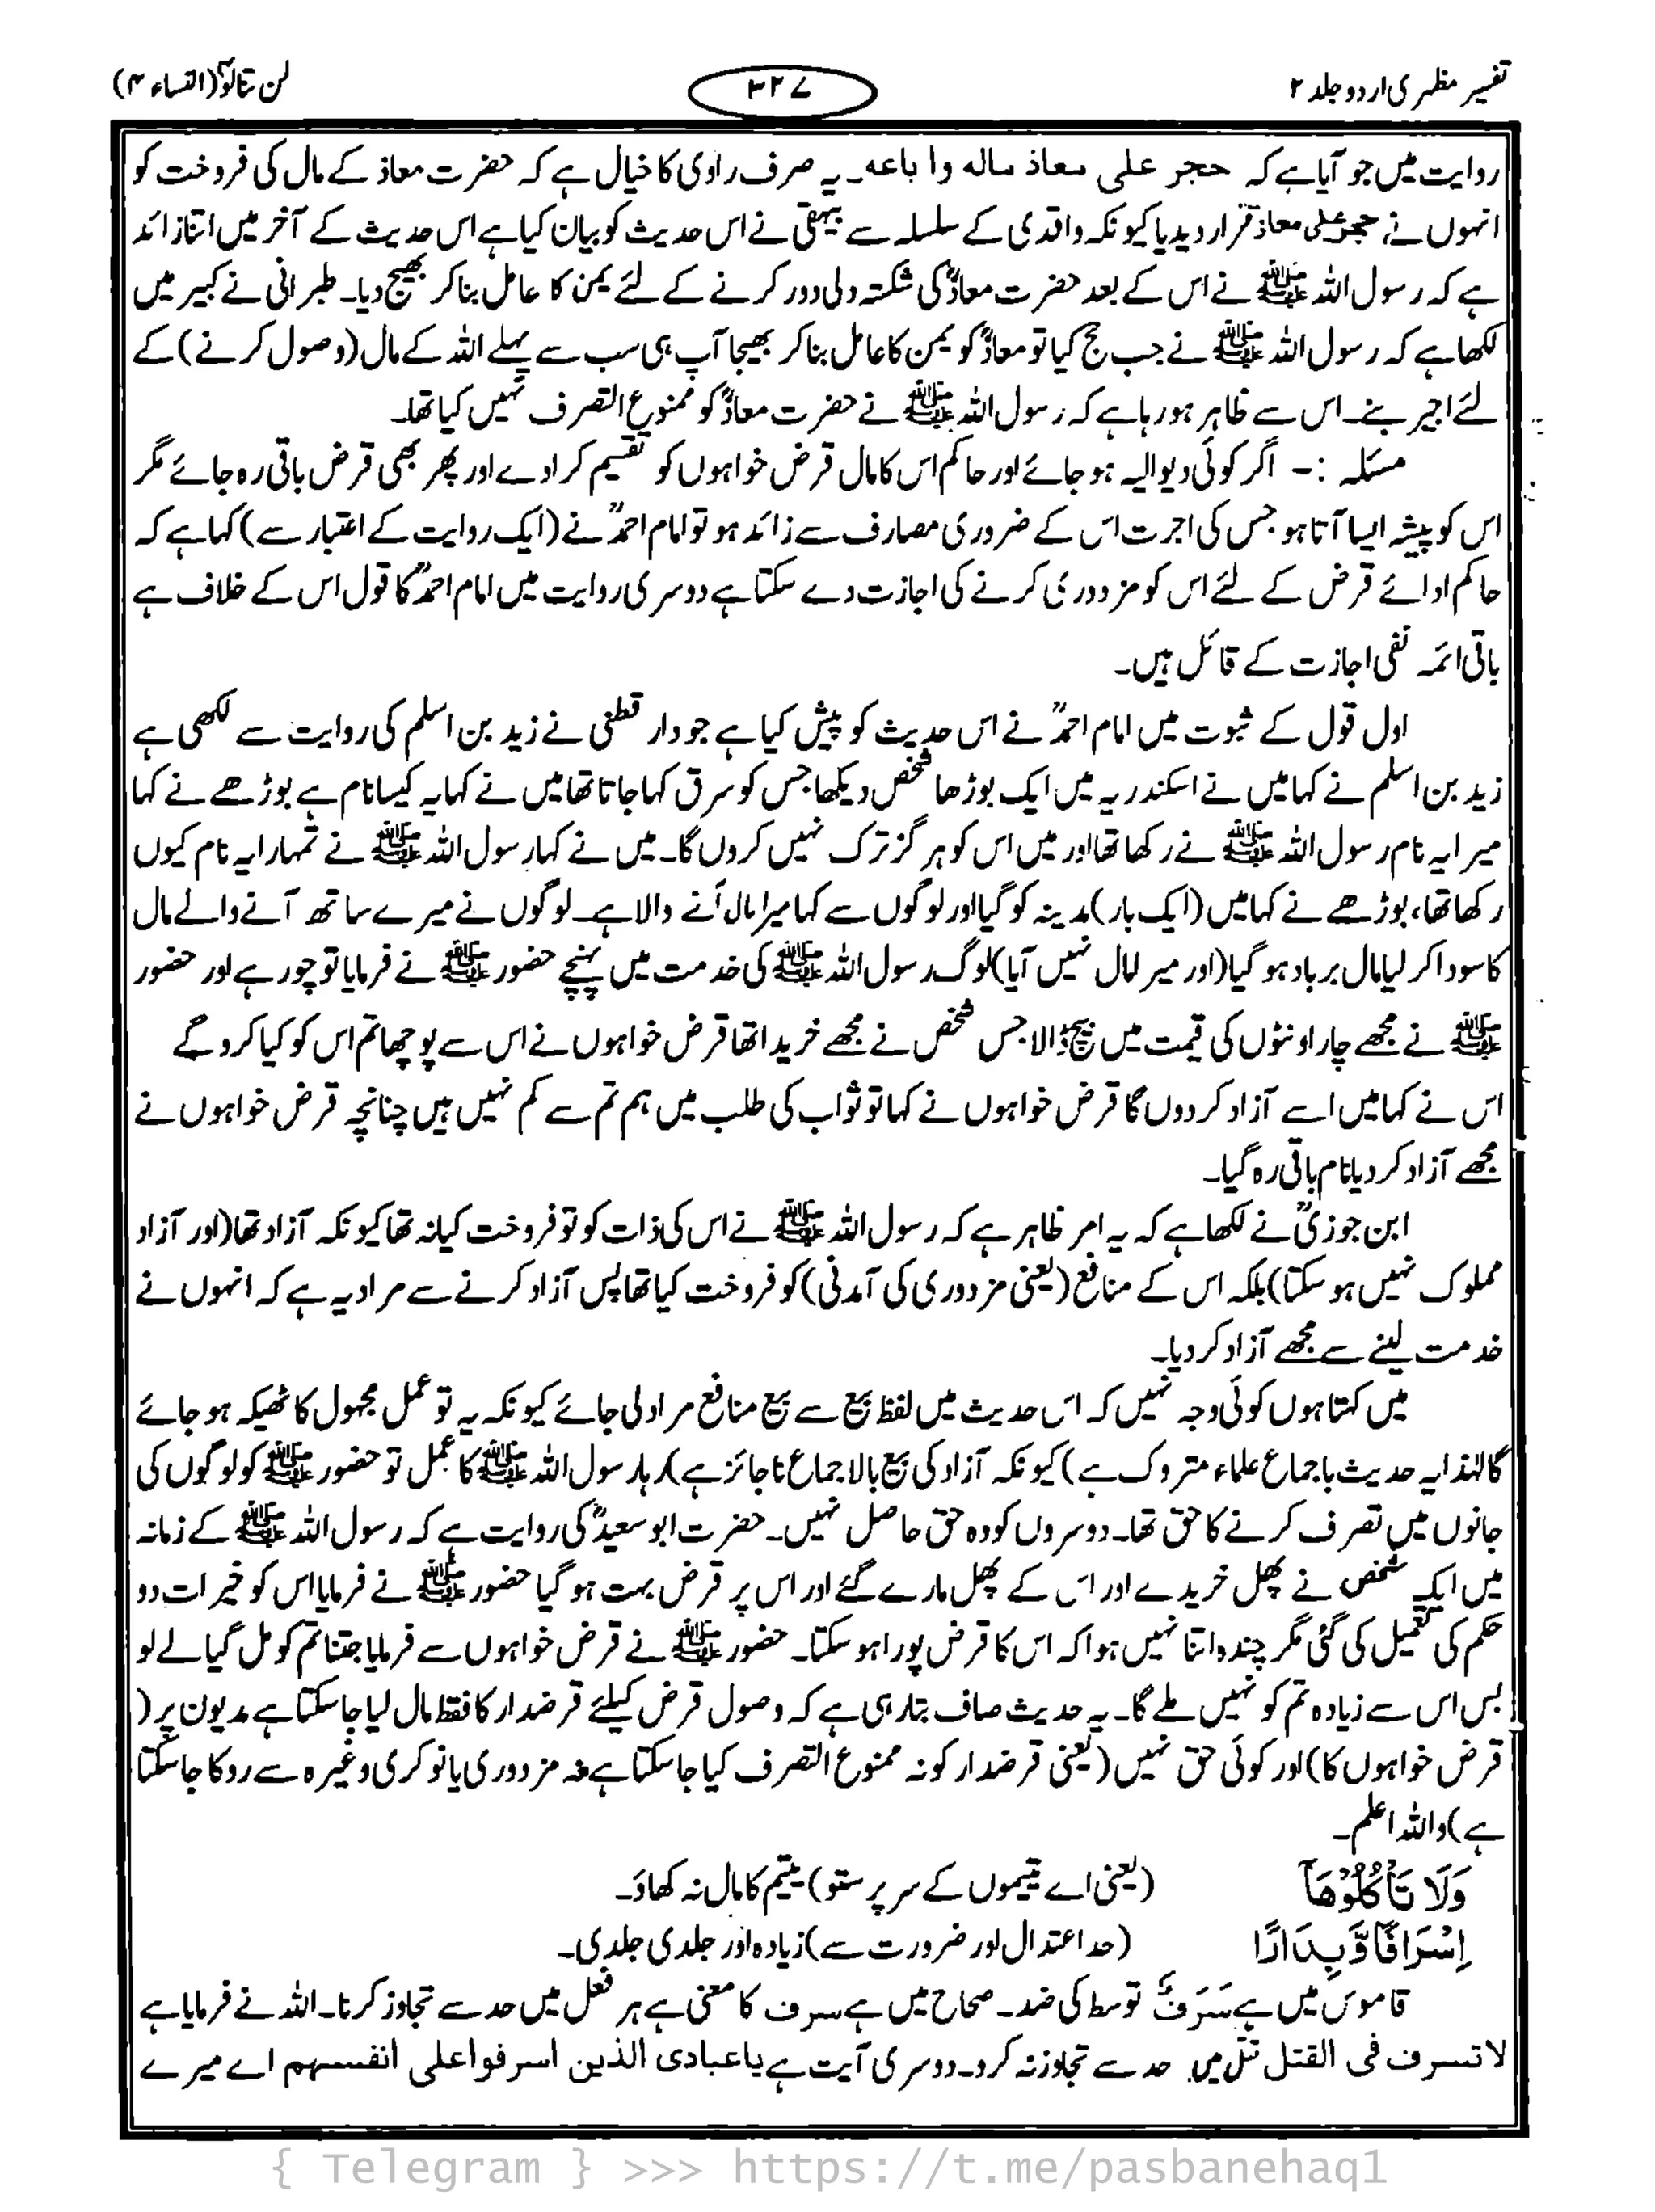 تفسیر مظہری اردو جلد ۲
۳۲۷
لن تنالوا (النساء ۴)
روایت میں جو آیا ہے کہ حجر علی معاذ ماله وا باعه۔ یہ صرف راوی کا خیال ہے کہ حضرت معاذ کے مال کی فروخت کو
انہوں نے حجر علی معاذ قرار دیدیا کیونکہ واقدی کے سلسلہ سے بیہقی نے اس حدیث کو بیان کیا ہے اس حدیث کے آخر میں اتنا زائد
ہے کہ رسول اللہ ﷺ نے اس کے بعد حضرت معاذؓ کی شکستہ دلی دور کرنے کے لئے یمن کا عامل بنا کر بھیج دیا۔ طبرانی نے کبیر میں
لکھا ہے کہ رسول اللہ ﷺ نے جب حج کیا تو معاذؓ کو یمن کا عامل بنا کر بھیجا آپ ہی سب سے پہلے اللہ کے مال (وصول کرنے) کے
لئے اجیر بنے۔ اس سے ظاہر ہو رہا ہے کہ رسول اللہ ﷺ نے حضرت معاذؓ کو ممنوع التصرف نہیں کیا تھا۔
مسئلہ :- اگر کوئی دیوالیہ ہو جائے اور حاکم اس کا مال قرض خواہوں کو تقسیم کرا دے اور پھر بھی قرض باقی رہ جائے مگر
اس کو پیشہ ایسا آتا ہو جس کی اجرت اس کے ضروری مصارف سے زائد ہو تو امام احمدؒ نے (ایک روایت کے اعتبار سے) کہا ہے کہ
حاکم ادائے قرض کے لئے اس کو مزدوری کرنے کی اجازت دے سکتا ہے دوسری روایت میں امام احمدؒ کا قول اس کے خلاف ہے
باقی ائمہ نفی اجازت کے قائل ہیں۔
اول قول کے ثبوت میں امام احمدؒ نے اس حدیث کو پیش کیا ہے جو دار قطنی نے زید بن اسلم کی روایت سے لکھی ہے
زید بن اسلم نے کہا میں نے اسکندریہ میں ایک بوڑھا شخص دیکھا جس کو سرق کہا جاتا تھا میں نے کہا یہ کیسا نام ہے بوڑھے نے کہا
میرا یہ نام رسول اللہ ﷺ نے رکھا تھا اور میں اس کو ہر گز ترک نہیں کروں گا۔ میں نے کہا رسول اللہ ﷺ نے تمہارا یہ نام کیوں
رکھا تھا، بوڑھے نے کہا میں (ایک بار) مدینہ کو گیا اور لوگوں سے کہا میرا مال آنے والا ہے۔ لوگوں نے میرے ساتھ آنے والے مال
کا سودا کر لیا مال برباد ہو گیا (اور میرا مال نہیں آیا) لوگ رسول اللہ ﷺ کی خدمت میں پہنچے حضور ﷺ نے فرمایا تو چور ہے اور حضور
ﷺ نے مجھے چار اونٹوں کی قیمت میں بیچ ڈالا جس شخص نے مجھے خریدا تھا قرض خواہوں نے اس سے پوچھا تم اس کو کیا کرو گے
اس نے کہا میں اسے آزاد کر دوں گا قرض خواہوں نے کہا تو ثواب کی طلب میں ہم تم سے کم نہیں ہیں چنانچہ قرض خواہوں نے
مجھے آزاد کر دیا نام باقی رہ گیا۔
ابن جوزیؒ نے لکھا ہے کہ یہ امر ظاہر ہے کہ رسول اللہ ﷺ نے اس کی ذات کو تو فروخت کیا نہ تھا کیونکہ آزاد تھا (اور آزاد
مملوک نہیں ہو سکتا) بلکہ اس کے منافع (یعنی مزدوری کی آمدنی) کو فروخت کیا تھا پس آزاد کرنے سے مراد یہ ہے کہ انہوں نے
خدمت لینے سے مجھے آزاد کر دیا۔
میں کہتا ہوں کوئی وجہ نہیں کہ اس حدیث میں لفظ بیع سے بیع منافع مراد لی جائے کیونکہ یہ تو عمل مجہول کا ٹھیکہ ہو جائے
گا لہٰذا یہ حدیث باجماع علماء متروک ہے) کیونکہ آزاد کی بیع بالاجماع ناجائز ہے) رہا رسول اللہ ﷺ کا عمل تو حضور ﷺ کو لوگوں کی
جانوں میں تصرف کرنے کا حق تھا۔ دوسروں کو وہ حق حاصل نہیں۔ حضرت ابو سعیدؓ کی روایت ہے کہ رسول اللہ ﷺ کے زمانہ
میں ایک شخص نے پھل خریدے اور اس کے پھل مارے گئے اور اس پر قرض بہت ہو گیا حضور ﷺ نے فرمایا اس کو خیرات دو
حکم کی تعمیل کی گئی مگر چندہ اتنا نہیں ہوا کہ اس کا قرض پورا ہو سکتا۔ حضور ﷺ نے قرض خواہوں سے فرمایا جتنا تم کو مل گیا لے لو
بس اس سے زیادہ تم کو نہیں ملے گا۔ یہ حدیث صاف بتا رہی ہے کہ وصول قرض کیلئے قرضدار کا فقط مال لیا جا سکتا ہے مدیون پر (
قرض خواہوں کا) اور کوئی حق نہیں (یعنی قرضدار کو نہ ممنوع التصرف کیا جا سکتا ہے نہ مزدوری یا نوکری وغیرہ سے روکا جا سکتا
ہے) واللہ اعلم۔
وَلَا تَأْكُلُوْهَآ (یعنی اے یتیموں کے سرپرستو) یتیم کا مال نہ کھاؤ۔
اِسْرَافًا وَّبِدَارًا (حد اعتدال اور ضرورت سے) زیادہ اور جلدی جلدی۔
قاموس میں ہے سَرَفٌ توسط کی ضد۔ صحاح میں ہے سرف کا معنی ہے ہر فعل میں حد سے تجاوز کرنا۔ اللہ نے فرمایا ہے
لا تسرف فی القتل قتل میں حد سے تجاوز نہ کرو۔ دوسری آیت ہے یا عبادی الذین اسرفوا علی انفسہم اے میرے
{ Telegram } >>> https://t.me/pasbanehaq1